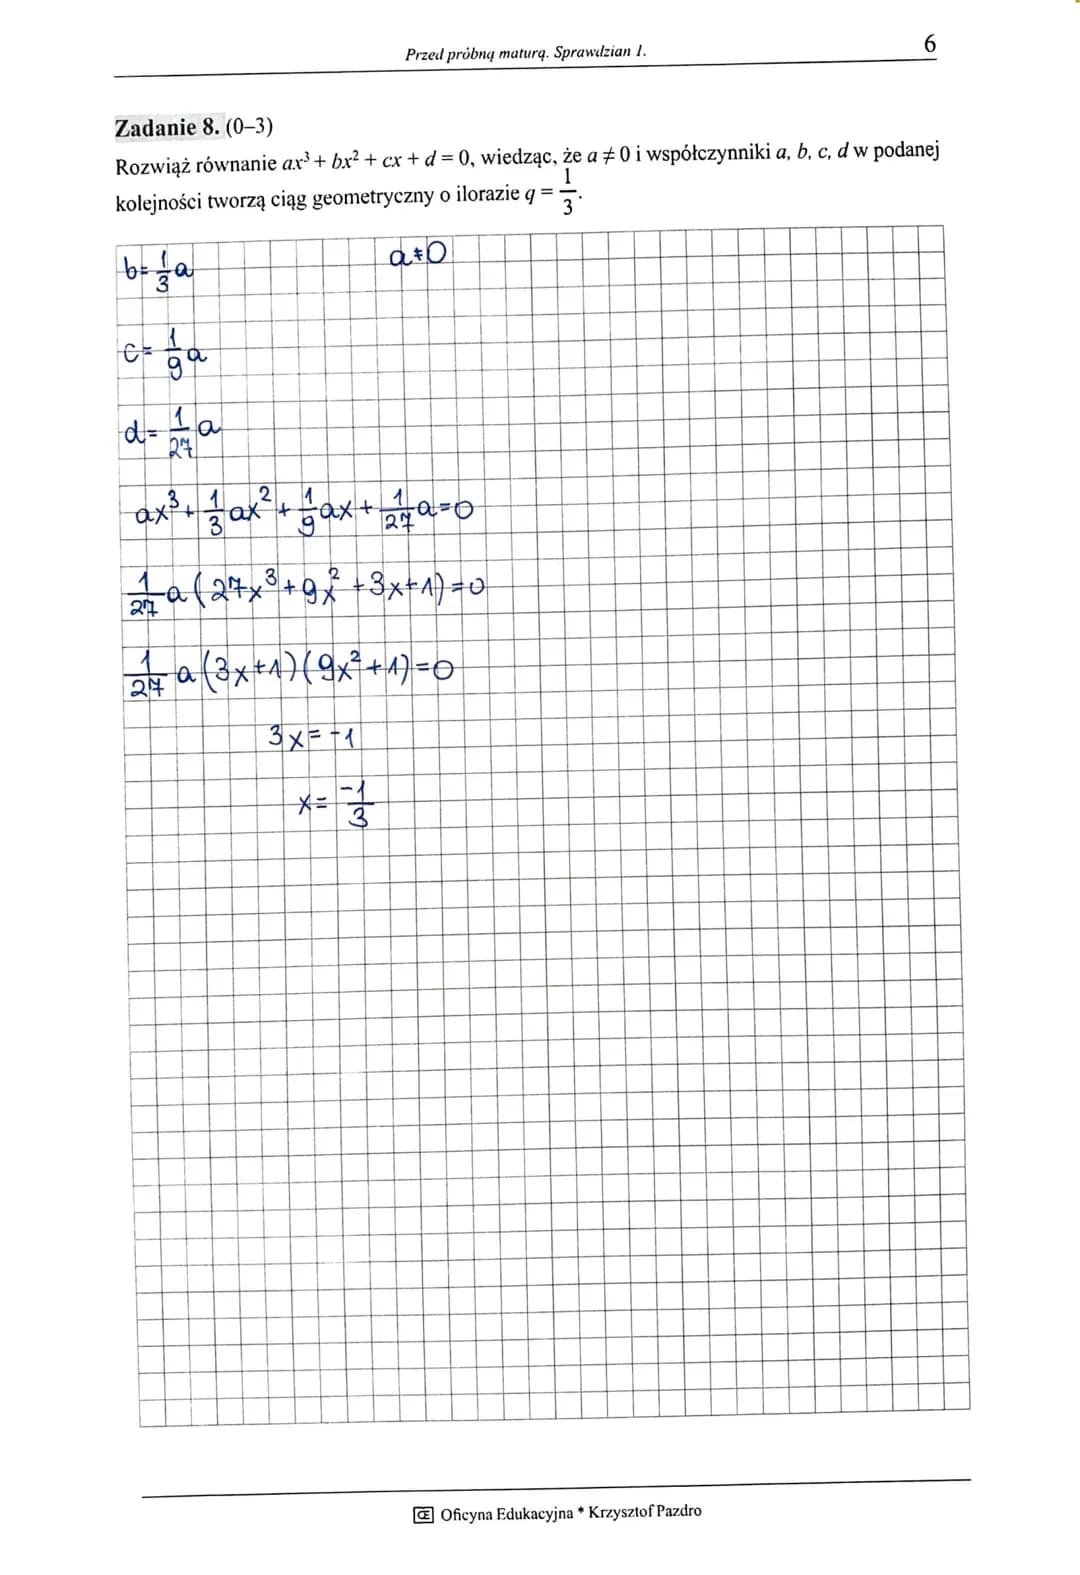 Przed próbną maturą. Sprawdzian 1.
6
Zadanie 8. (0–3)
Rozwiąż równanie ax³ + bx² + cx + d = 0, wiedząc, że a ≠ 0 i współczynniki a, b, c, d w podanej
kolejności tworzą ciąg geometryczny o ilorazie q = 1/3.
b = 1/3 a
a ≠ 0
c = 1/9 a
d = 1/27 a
ax³ + 1/3 ax² + 1/9 ax + 1/27 a = 0
1/27 a (27x³ + 9x² + 3x + 1) = 0
1/27 a (3x + 1)(9x² + 1) = 0
3x = -1
x = -1/3
Œ Oficyna Edukacyjna * Krzysztof Pazdro